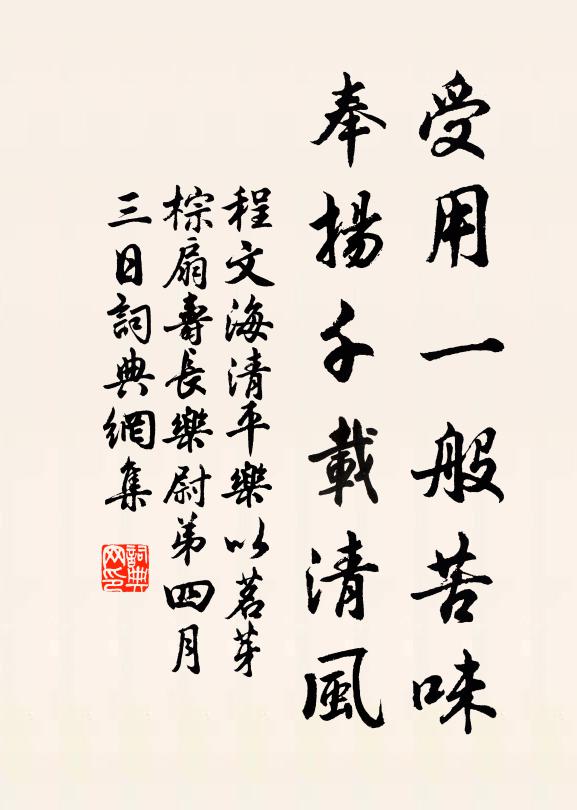 受用一般苦味
奉揚千載清風
程文海清平樂以茗芽
棕扇壽長樂尉第四月
三日詞典網集
詞典网印